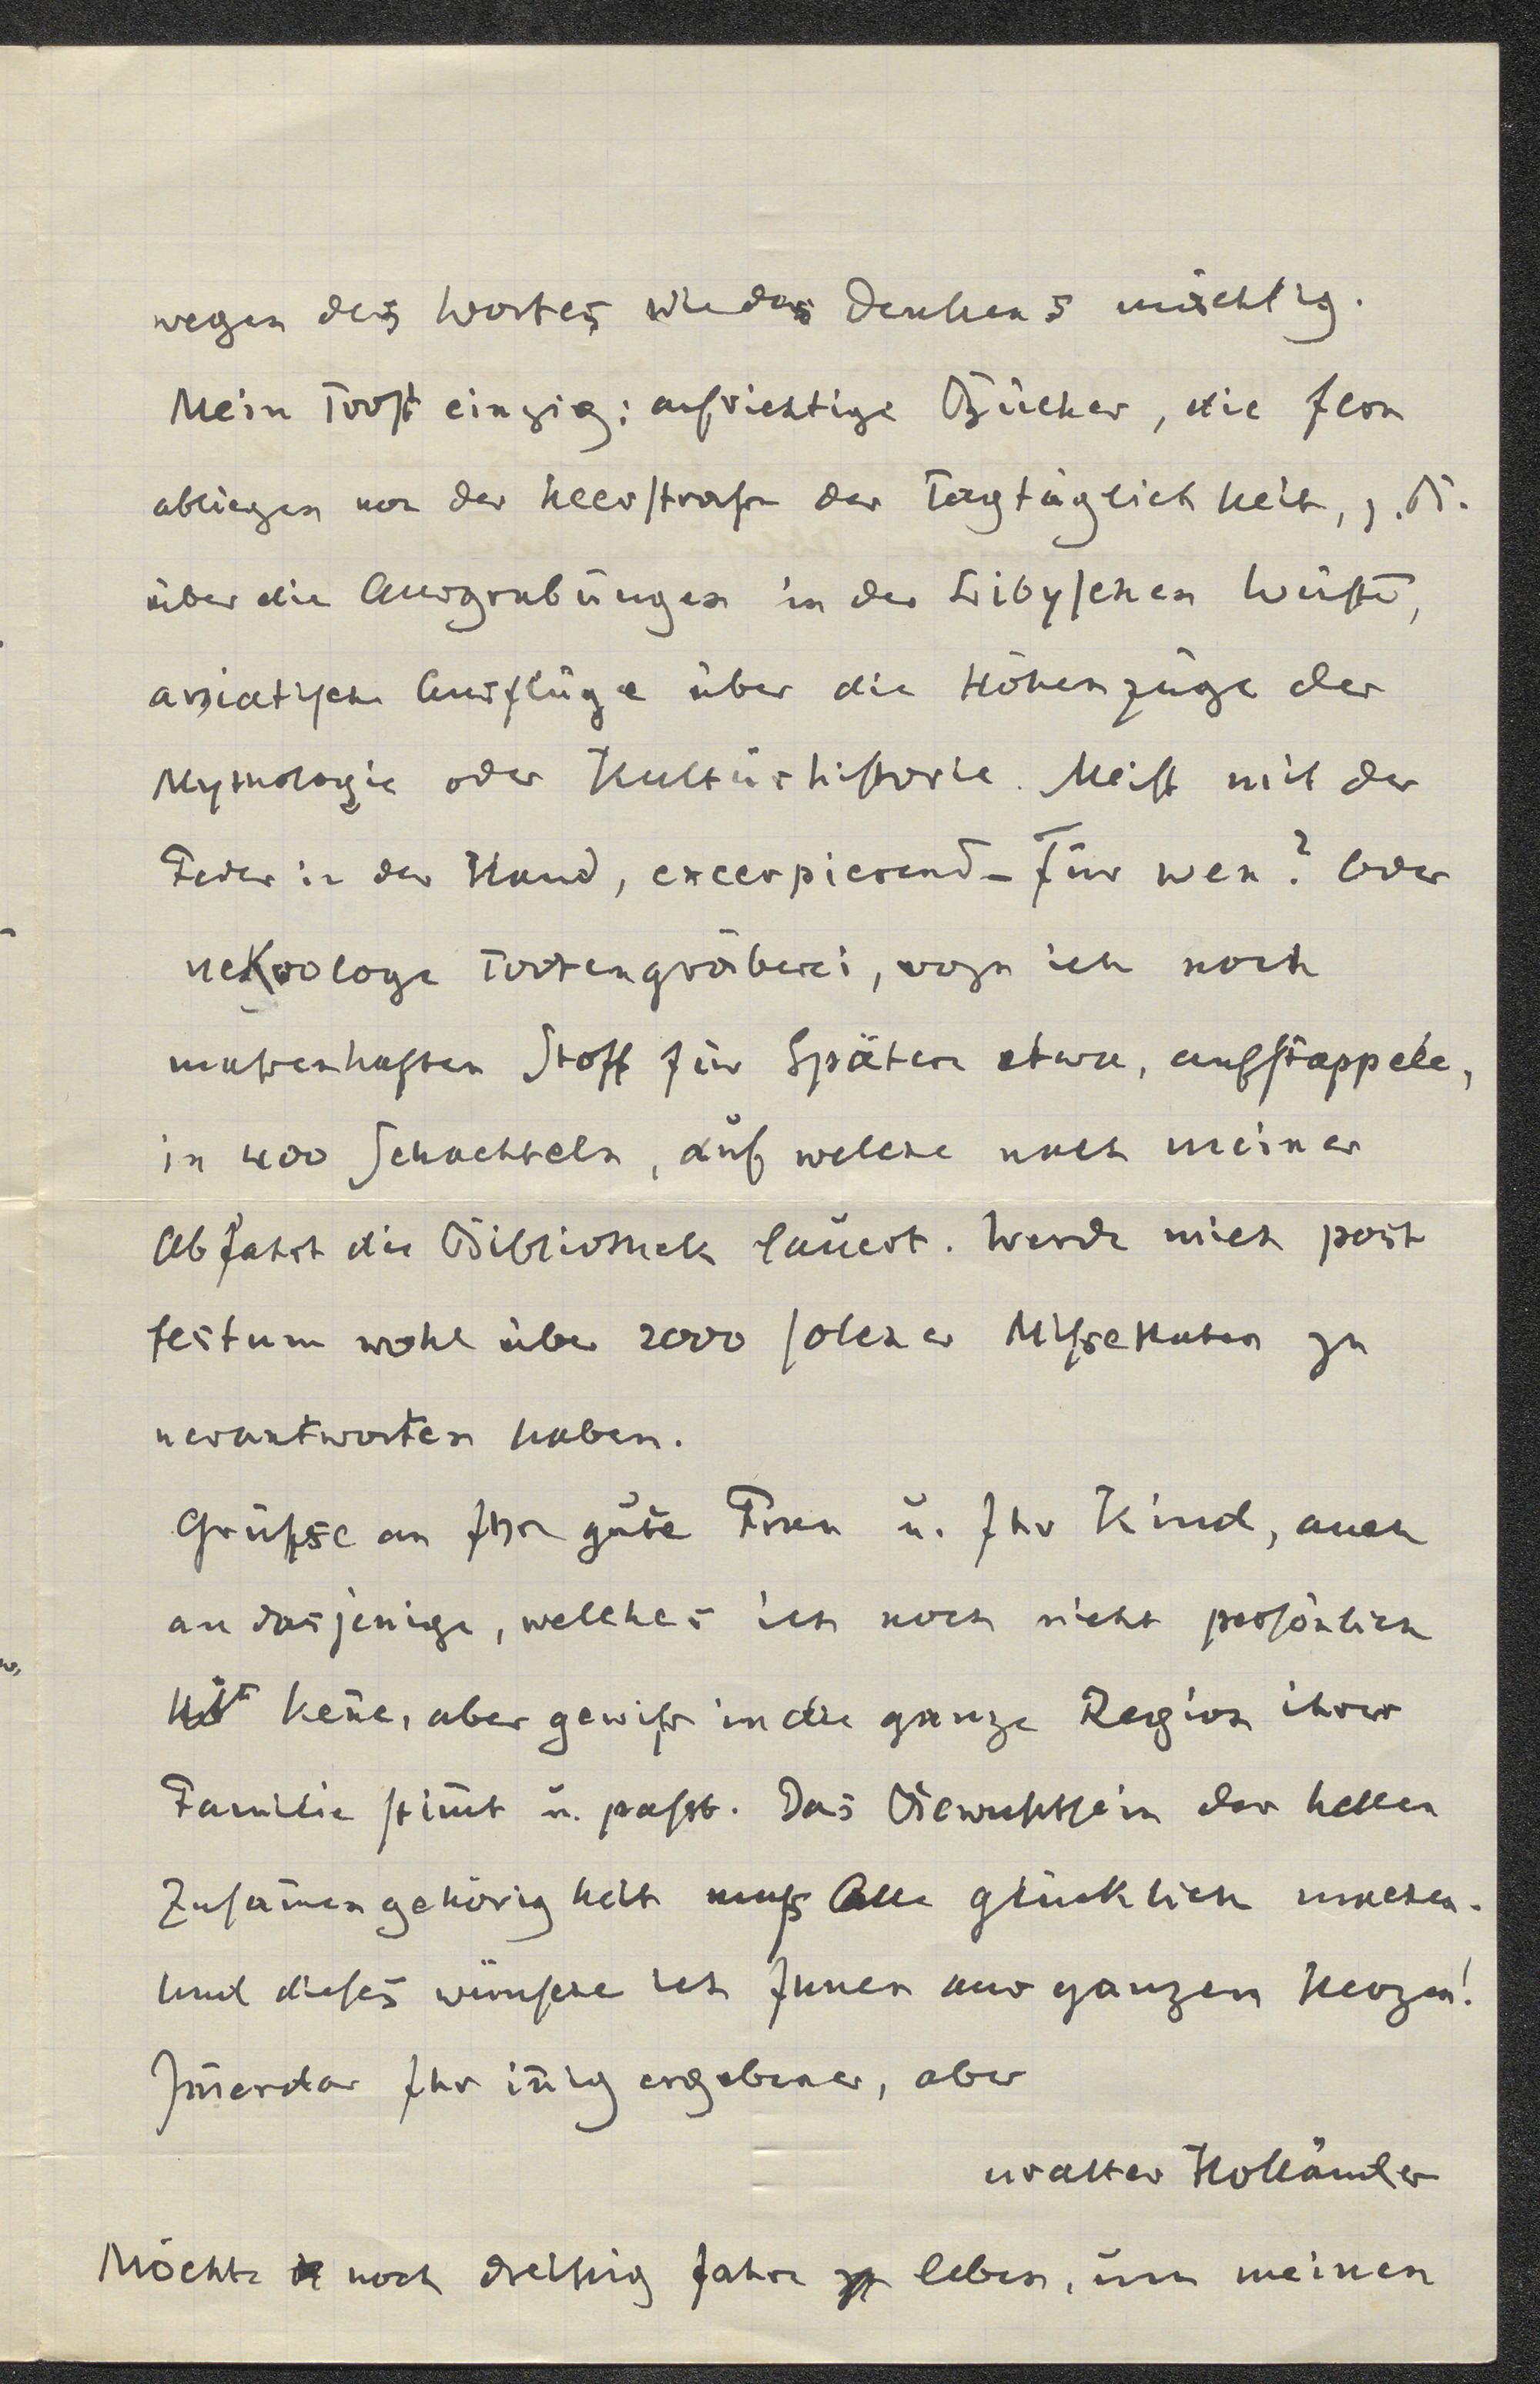 wegen des Wortes wie des Denkens mächtig.
Mein Trost einzig: aufrichtige Bücher, die fern
abliegen von der Heerstraße der Tagtäglichkeit, z. B.
über die Ausgrabungen in der Libyschen Wüste,
asiatische Ausflüge über die Höhenzüge der
Mythologie oder Kulturhistorie. Meist mit der
Feder in der Hand, excerpierend – für wen? Oder
nekrologe Tootengräberei, wozu ich noch
massenhaften Stoff für Spätere etwa, aufstappele,
in 400 Schachteln, auf welche nach meiner
Abfahrt die Bibliothek lauert. Werde mich post
festum wohl über 2000 solcher Missethaten zu
verantworten haben.
Grüßse an Ihre gute Frau u. Ihr Kind, auch
an dasjenige, welches ich noch nicht persönlich
keñe, aber gewiß in die ganze Region ihrer
Familie stim̄t u. passt. Das Bewusstsein der hellen
Zusam̄engehörigkeit muß Alle glücklich machen.
Und dieses wünsche ich Ihnen aus ganzem Herzen!
Im̄erdar Ihr iñig ergebener, aber
uralter Holländer
Möchte noch dreißig Jahre leben, um meinen